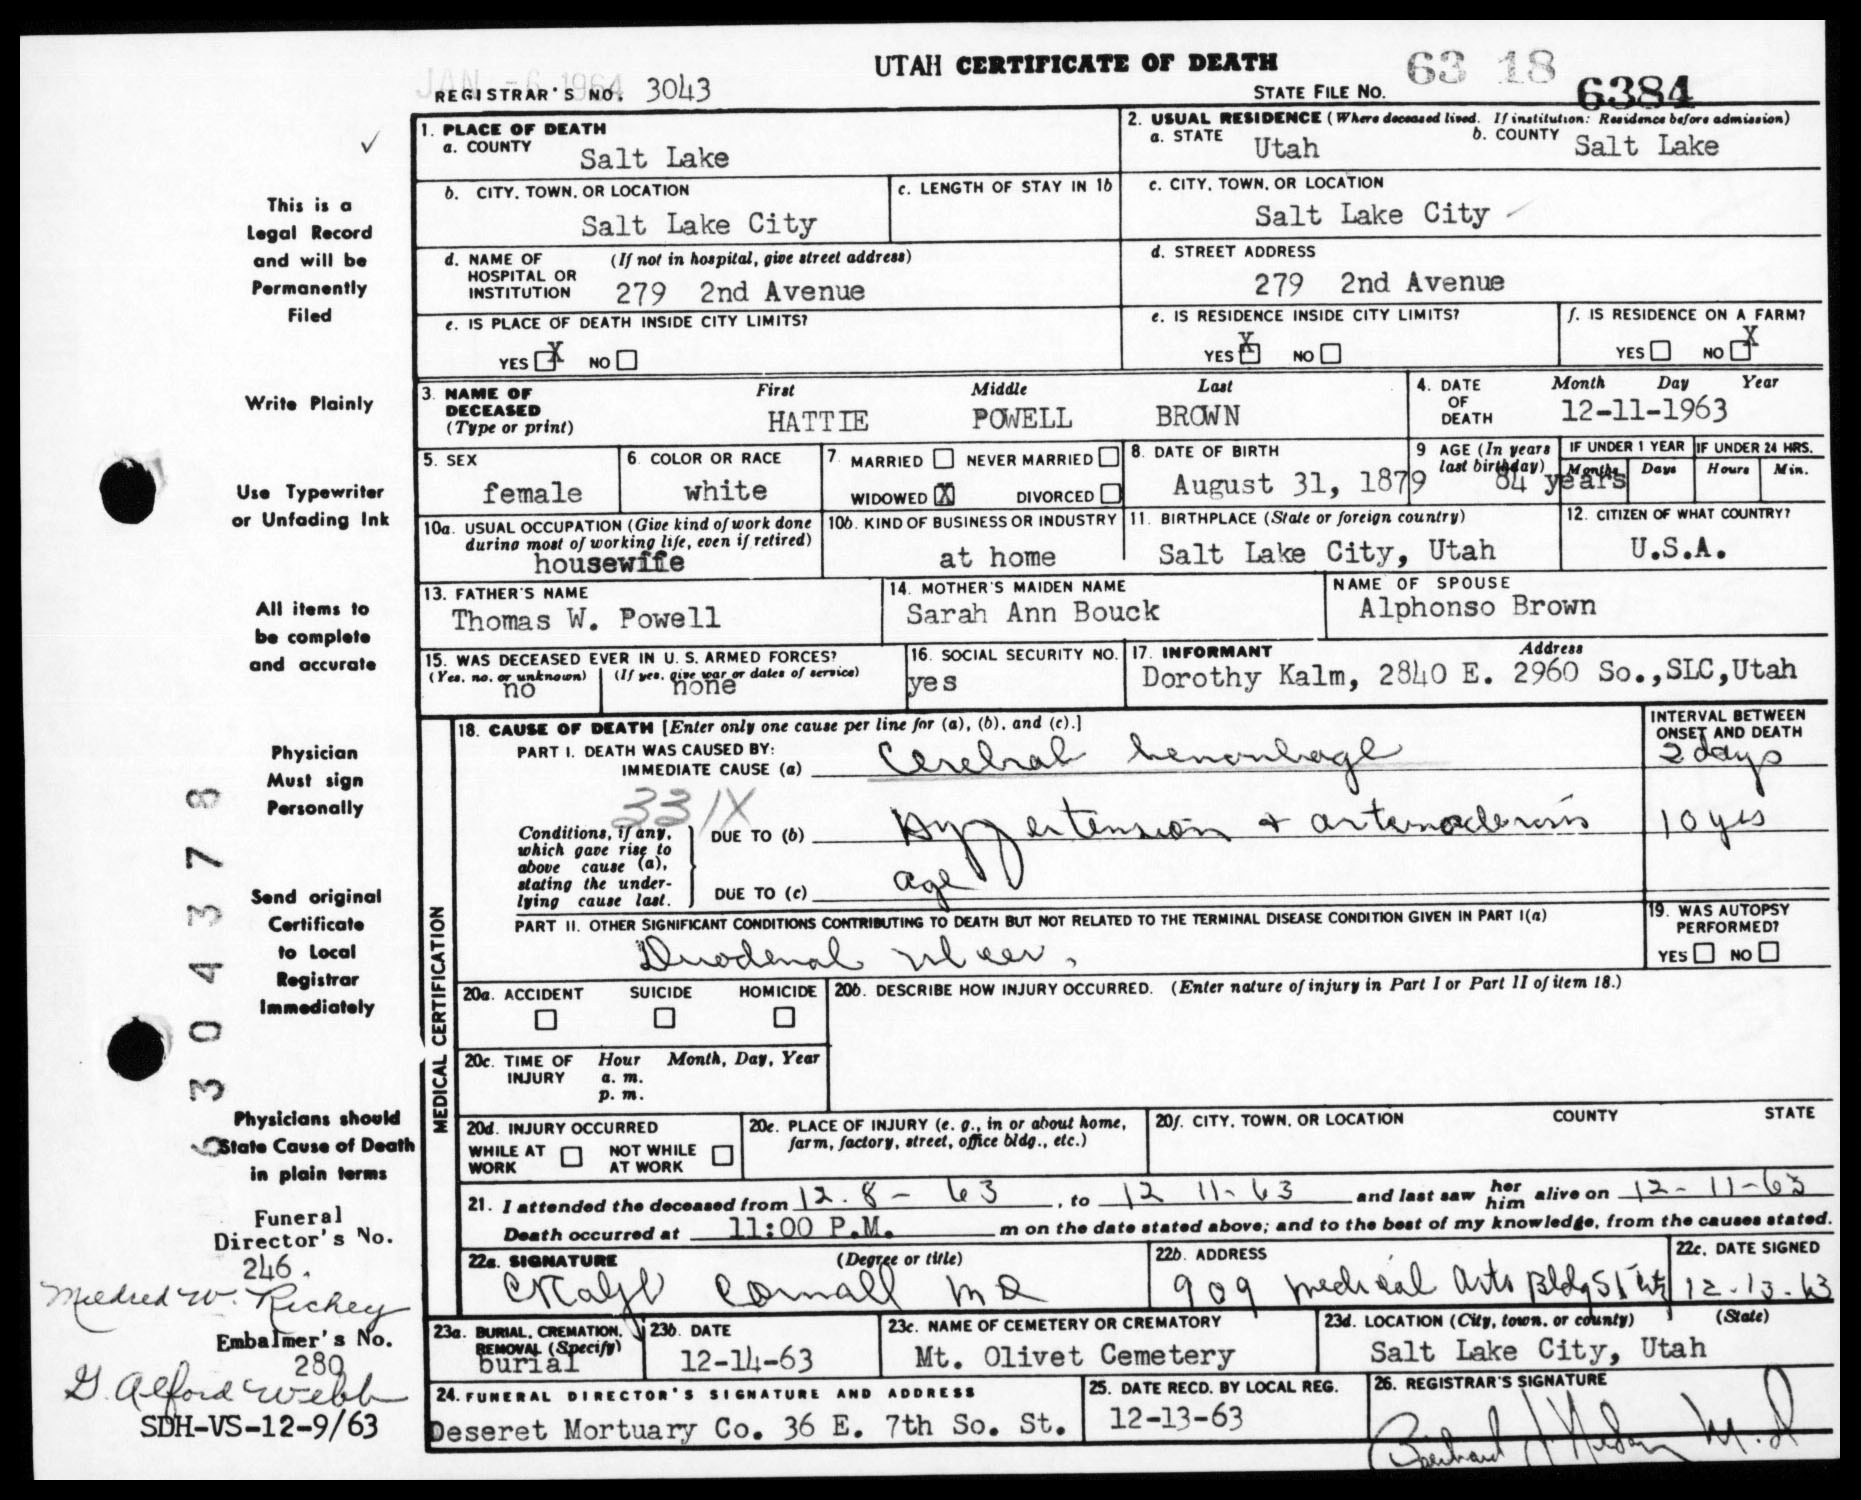 UTAH CERTIFICATE OF DEATH
63 18
JAN -6 1964
REGISTRAR'S NO. 3043
STATE FILE NO. 6384
✓
1. PLACE OF DEATH
a. COUNTY
Salt Lake
2. USUAL RESIDENCE (Where deceased lived. If institution: Residence before admission)
a. STATE Utah b. COUNTY Salt Lake
b. CITY, TOWN, OR LOCATION
Salt Lake City
c. LENGTH OF STAY IN 1b
c. CITY, TOWN, OR LOCATION
Salt Lake City
d. NAME OF HOSPITAL OR INSTITUTION (If not in hospital, give street address)
279 2nd Avenue
d. STREET ADDRESS
279 2nd Avenue
e. IS PLACE OF DEATH INSIDE CITY LIMITS?
YES X NO
e. IS RESIDENCE INSIDE CITY LIMITS?
YES X NO
f. IS RESIDENCE ON A FARM?
YES NO X
3. NAME OF DECEASED (Type or print)
First Middle Last
HATTIE POWELL BROWN
4. DATE OF DEATH Month Day Year
12-11-1963
5. SEX
female
6. COLOR OR RACE
white
7. MARRIED NEVER MARRIED
WIDOWED X DIVORCED
8. DATE OF BIRTH
August 31, 1879
9 AGE (In years last birthday)
84 years
IF UNDER 1 YEAR
Months Days
IF UNDER 24 HRS.
Hours Min.
10a. USUAL OCCUPATION (Give kind of work done during most of working life, even if retired)
housewife
10b. KIND OF BUSINESS OR INDUSTRY
at home
11. BIRTHPLACE (State or foreign country)
Salt Lake City, Utah
12. CITIZEN OF WHAT COUNTRY?
U.S.A.
13. FATHER'S NAME
Thomas W. Powell
14. MOTHER'S MAIDEN NAME
Sarah Ann Bouck
NAME OF SPOUSE
Alphonso Brown
15. WAS DECEASED EVER IN U. S. ARMED FORCES?
(Yes, no, or unknown) (If yes, give war or dates of service)
no none
16. SOCIAL SECURITY NO.
yes
17. INFORMANT Address
Dorothy Kalm, 2840 E. 2960 So.,SLC,Utah
MEDICAL CERTIFICATION
18. CAUSE OF DEATH [Enter only one cause per line for (a), (b), and (c).]
PART I. DEATH WAS CAUSED BY:
IMMEDIATE CAUSE (a) Cerebral hemorrhage
INTERVAL BETWEEN ONSET AND DEATH
2 days
331X
Conditions, if any, which gave rise to above cause (a), stating the underlying cause last.
DUE TO (b) Hypertension + arteriosclerosis 10 yrs
DUE TO (c) age
PART II. OTHER SIGNIFICANT CONDITIONS CONTRIBUTING TO DEATH BUT NOT RELATED TO THE TERMINAL DISEASE CONDITION GIVEN IN PART I(a)
Duodenal ulcer.
19. WAS AUTOPSY PERFORMED?
YES NO
20a. ACCIDENT SUICIDE HOMICIDE
20b. DESCRIBE HOW INJURY OCCURRED. (Enter nature of injury in Part I or Part II of item 18.)
20c. TIME OF INJURY Hour Month, Day, Year
a. m.
p. m.
20d. INJURY OCCURRED
WHILE AT WORK NOT WHILE AT WORK
20e. PLACE OF INJURY (e. g., in or about home, farm, factory, street, office bldg., etc.)
20f. CITY, TOWN, OR LOCATION COUNTY STATE
21. I attended the deceased from 12-8-63, to 12 11-63 and last saw her him alive on 12-11-63
Death occurred at 11:00 P.M. m on the date stated above; and to the best of my knowledge, from the causes stated.
22a. SIGNATURE (Degree or title)
Cornall MD
22b. ADDRESS
909 medical Arts Bldg
22c. DATE SIGNED
12-13-63
23a. BURIAL, CREMATION, REMOVAL (Specify)
burial
23b. DATE
12-14-63
23c. NAME OF CEMETERY OR CREMATORY
Mt. Olivet Cemetery
23d. LOCATION (City, town, or county) (State)
Salt Lake City, Utah
24. FUNERAL DIRECTOR'S SIGNATURE AND ADDRESS
Deseret Mortuary Co. 36 E. 7th So. St.
25. DATE RECD. BY LOCAL REG.
12-13-63
26. REGISTRAR'S SIGNATURE
M.D
This is a
Legal Record
and will be
Permanently
Filed
Write Plainly
Use Typewriter
or Unfading Ink
All items to
be complete
and accurate
Physician
Must sign
Personally
Send original
Certificate
to Local
Registrar
Immediately
Physicians should
State Cause of Death
in plain terms
6304378
Funeral
Director's No.
246.
Mildred W. Richey
Embalmer's No.
280
G. Alford Webb
SDH-VS-12-9/63